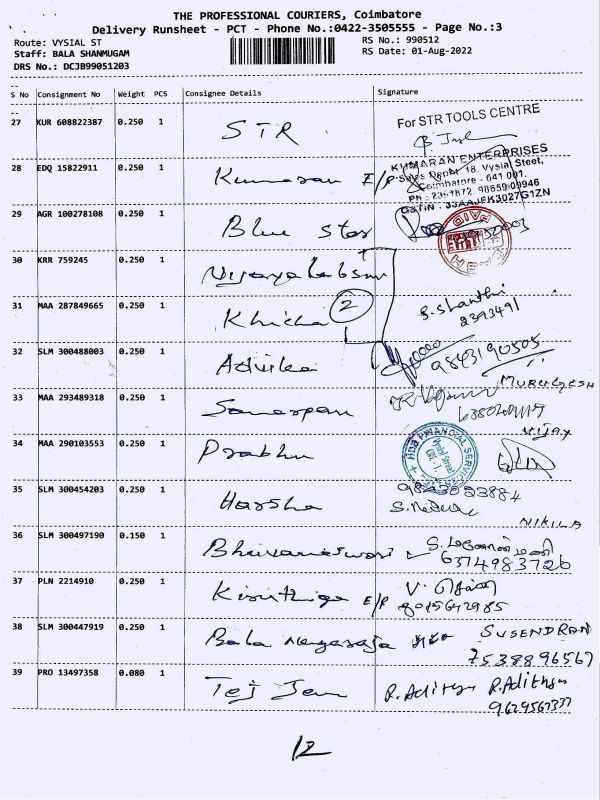 THE PROFESSIONAL COURIERS, Coimbatore
Delivery Runsheet - PCT - Phone No.:0422-3505555 - Page No.:3
Route: VYSIAL ST
RS No.: 990512
Staff: BALA SHANMUGAM
RS Date: 01-Aug-2022
DRS No.: DCJB99051203
S No Consignment No Weight PCS Consignee Details Signature
27 KUR 608822387 0.250 1 STR
For STR TOOLS CENTRE
28 EDQ 15822911 0.250 1 Kumaran E/P
KUMARAN ENTERPRISES
Sales Depot 18, Vysial Street,
Coimbatore - 641 001.
29 AGR 100278108 0.250 1 Blue Star
PAID
30 KRR 759245 0.250 1
31 MAA 287849665 0.250 1 Khicha 2
S. Shanthi
2393491
32 SLM 300488003 0.250 1 Advika
9843190505
MURUGESH
33 MAA 293489318 0.250 1
Vijay
34 MAA 290103553 0.250 1 Prabhu
HDB FINANCIAL SERVICES
35 SLM 300454203 0.250 1 Harsha
NIKILA
36 SLM 300497190 0.150 1 Bhuvaneswari
6374983726
37 PLN 2214910 0.250 1 Kiruthiga E/P
V.
8015642985
38 SLM 300447919 0.250 1 Bala Nagaraja
SUSENDRAN
7538896567
39 PRO 13497358 0.080 1 Tej Jem
R. Adithya R. Adithya
9629567337
12